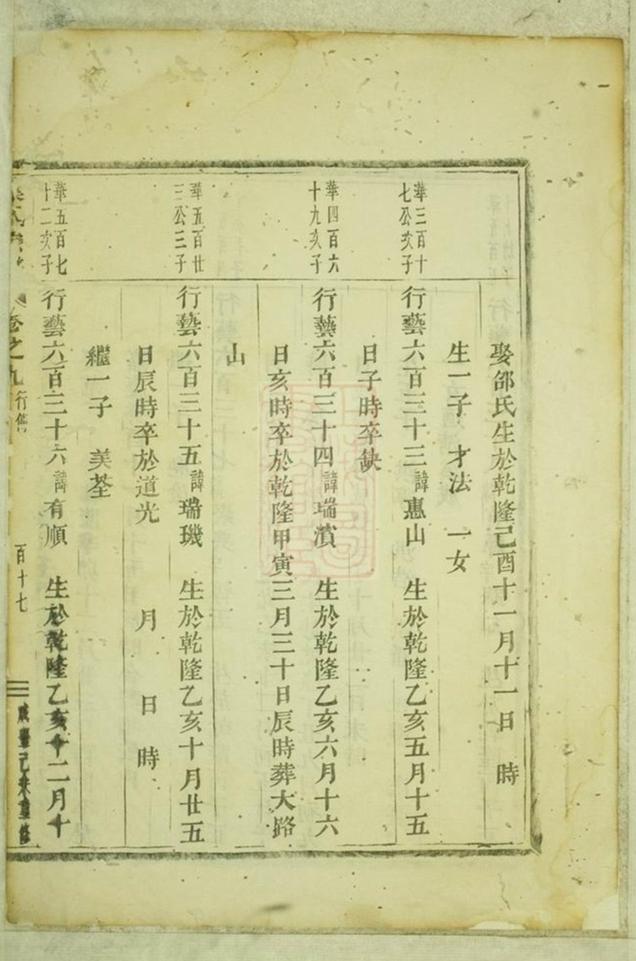 娶邵氏生於乾隆己酉十一月十一日　時
生一子　才法　一女
華三百十
七公亥子
行藝六百三十三諱惠山　生於乾隆乙亥五月十五
日子時卒缺
華四百六
十九亥子
行藝六百三十四諱瑞濱　生於乾隆乙亥六月十六
日亥時卒於乾隆甲寅三月三十日辰時葬大路
山
華五百廿
三公三子
行藝六百三十五諱瑞璣　生於乾隆乙亥十月廿五
日辰時卒於道光　月　日　時
繼一子　美荃
華五百七
十二亥子
行藝六百三十六諱有順　生於乾隆乙亥十二月十
卷之九行傳
百十七
咸豐己未重修